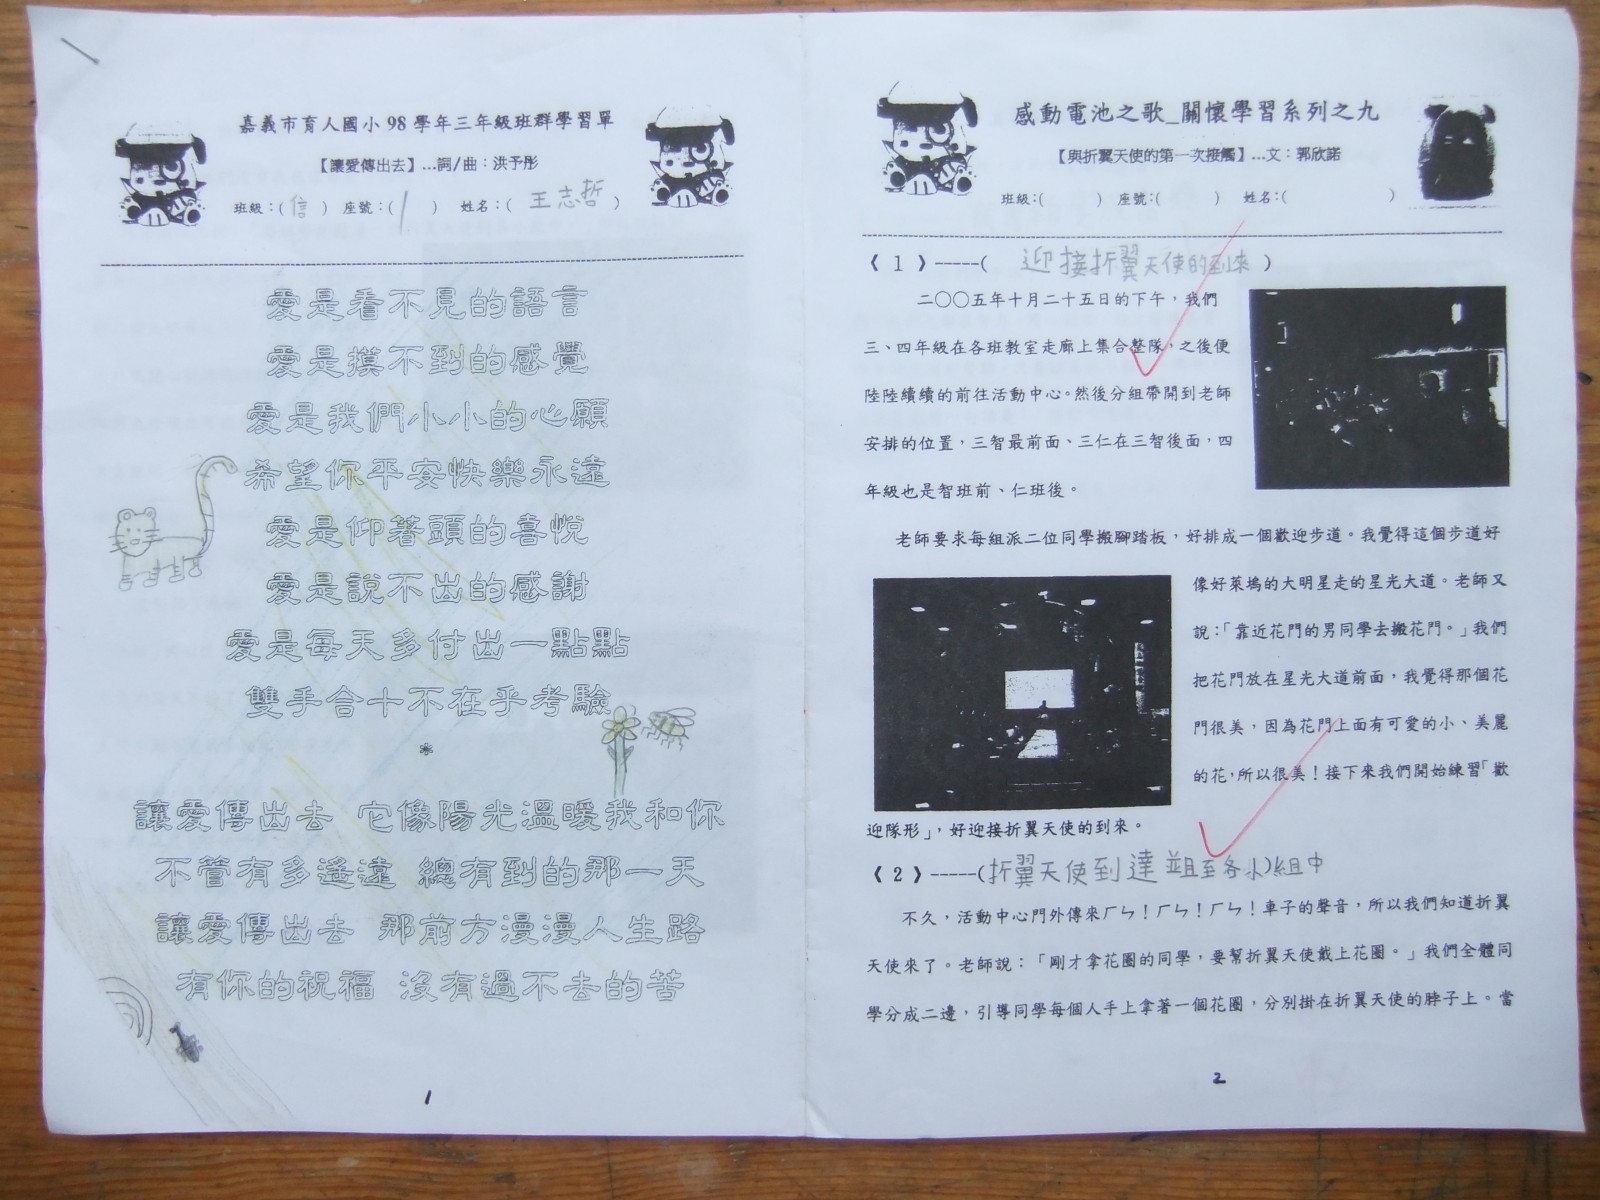 嘉義市育人國小98學年三年級班群學習單
【讓愛傳出去】…詞/曲：洪予彤
班級：(信) 座號：(1) 姓名：(王志哲)
愛是看不見的語言
愛是摸不到的感覺
愛是我們小小的心願
希望你平安快樂永遠
愛是仰著頭的喜悅
愛是說不出的感謝
愛是每天多付出一點點
雙手合十不在乎考驗
*
讓愛傳出去 它像陽光溫暖我和你
不管有多遙遠 總有到的那一天
讓愛傳出去 那前方漫漫人生路
有你的祝福 沒有過不去的苦
1
感動電池之歌_關懷學習系列之九
【與折翼天使的第一次接觸】…文：郭欣諾
班級：( ) 座號：( ) 姓名：( )
《 1 》-----( 迎接折翼天使的到來 )
二○○五年十月二十五日的下午，我們
三、四年級在各班教室走廊上集合整隊，之後便
陸陸續續的前往活動中心。然後分組帶開到老師
安排的位置，三智最前面、三仁在三智後面，四
年級也是智班前、仁班後。
老師要求每組派二位同學搬腳踏板，好排成一個歡迎步道。我覺得這個步道好
像好萊塢的大明星走的星光大道。老師又
說：「靠近花門的男同學去搬花門。」我們
把花門放在星光大道前面，我覺得那個花
門很美，因為花門上面有可愛的小、美麗
的花，所以很美！接下來我們開始練習「歡
迎隊形」，好迎接折翼天使的到來。
《 2 》-----(折翼天使到達並且至各小)組中
不久，活動中心門外傳來ㄏㄣ！ㄏㄣ！ㄏㄣ！車子的聲音，所以我們知道折翼
天使來了。老師說：「剛才拿花圈的同學，要幫折翼天使戴上花圈。」我們全體同
學分成二邊，引導同學每個人手上拿著一個花圈，分別掛在折翼天使的脖子上。當
2